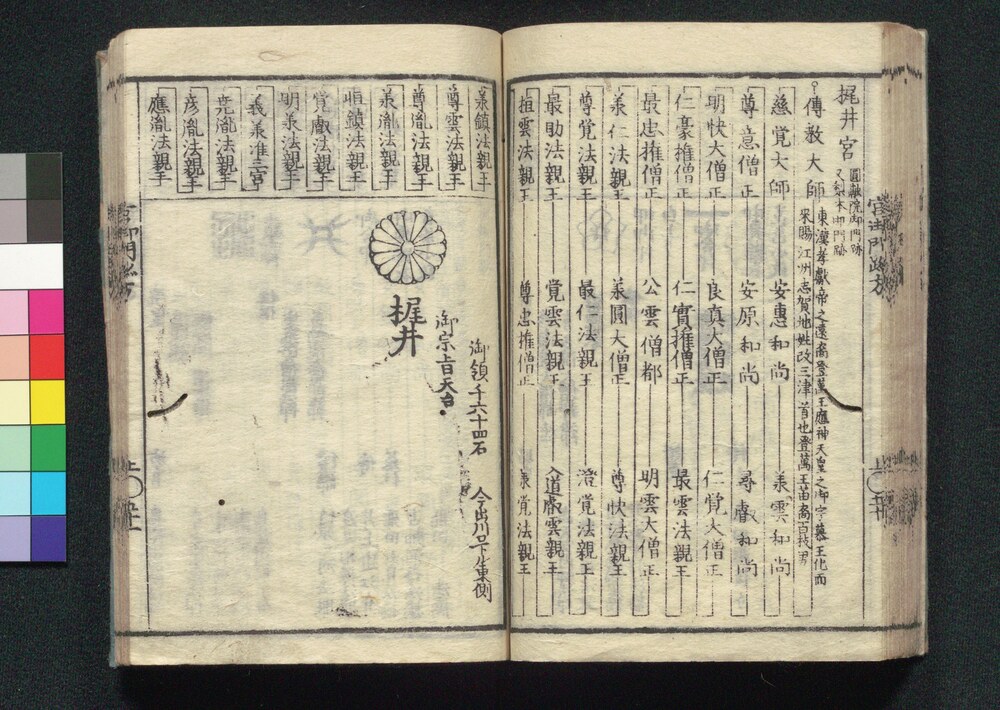 梶井宮
圓融院御門跡
又梨本御門跡
傳教大師
東漢孝獻帝之遠裔登萬王應神天皇之御宇慕王化而
來陽江州志賀地姓改三津首也登萬王苗裔百枝男
慈覺大師 安惠和尚 承雲和尚
尊意僧正 安原和尚 尋叡和尚
明快大僧正 良真大僧正 仁覺大僧正
仁豪權僧正 仁實權僧正 最雲法親王
最忠權僧正 公雲僧都 明雲大僧正
承仁法親王 承圓大僧正 尊快法親王
尊覺法親王 最仁法親王 澄覺法親王
最助法親王 覺雲法親王 入道叡雲親王
恒雲法親王 尊忠權僧正 承覺法親王
承鎮法親王
尊雲法親王
尊胤法親王
承胤法親王
恒鎮法親王
覺叡法親王
明承法親王
義承准三宮
堯胤法親王
彦胤法親王
應胤法親王
御領千六十四石 今出川口下ル東側
御宗旨天台
梶井
宮御門跡方
上〇五十
上〇五十一